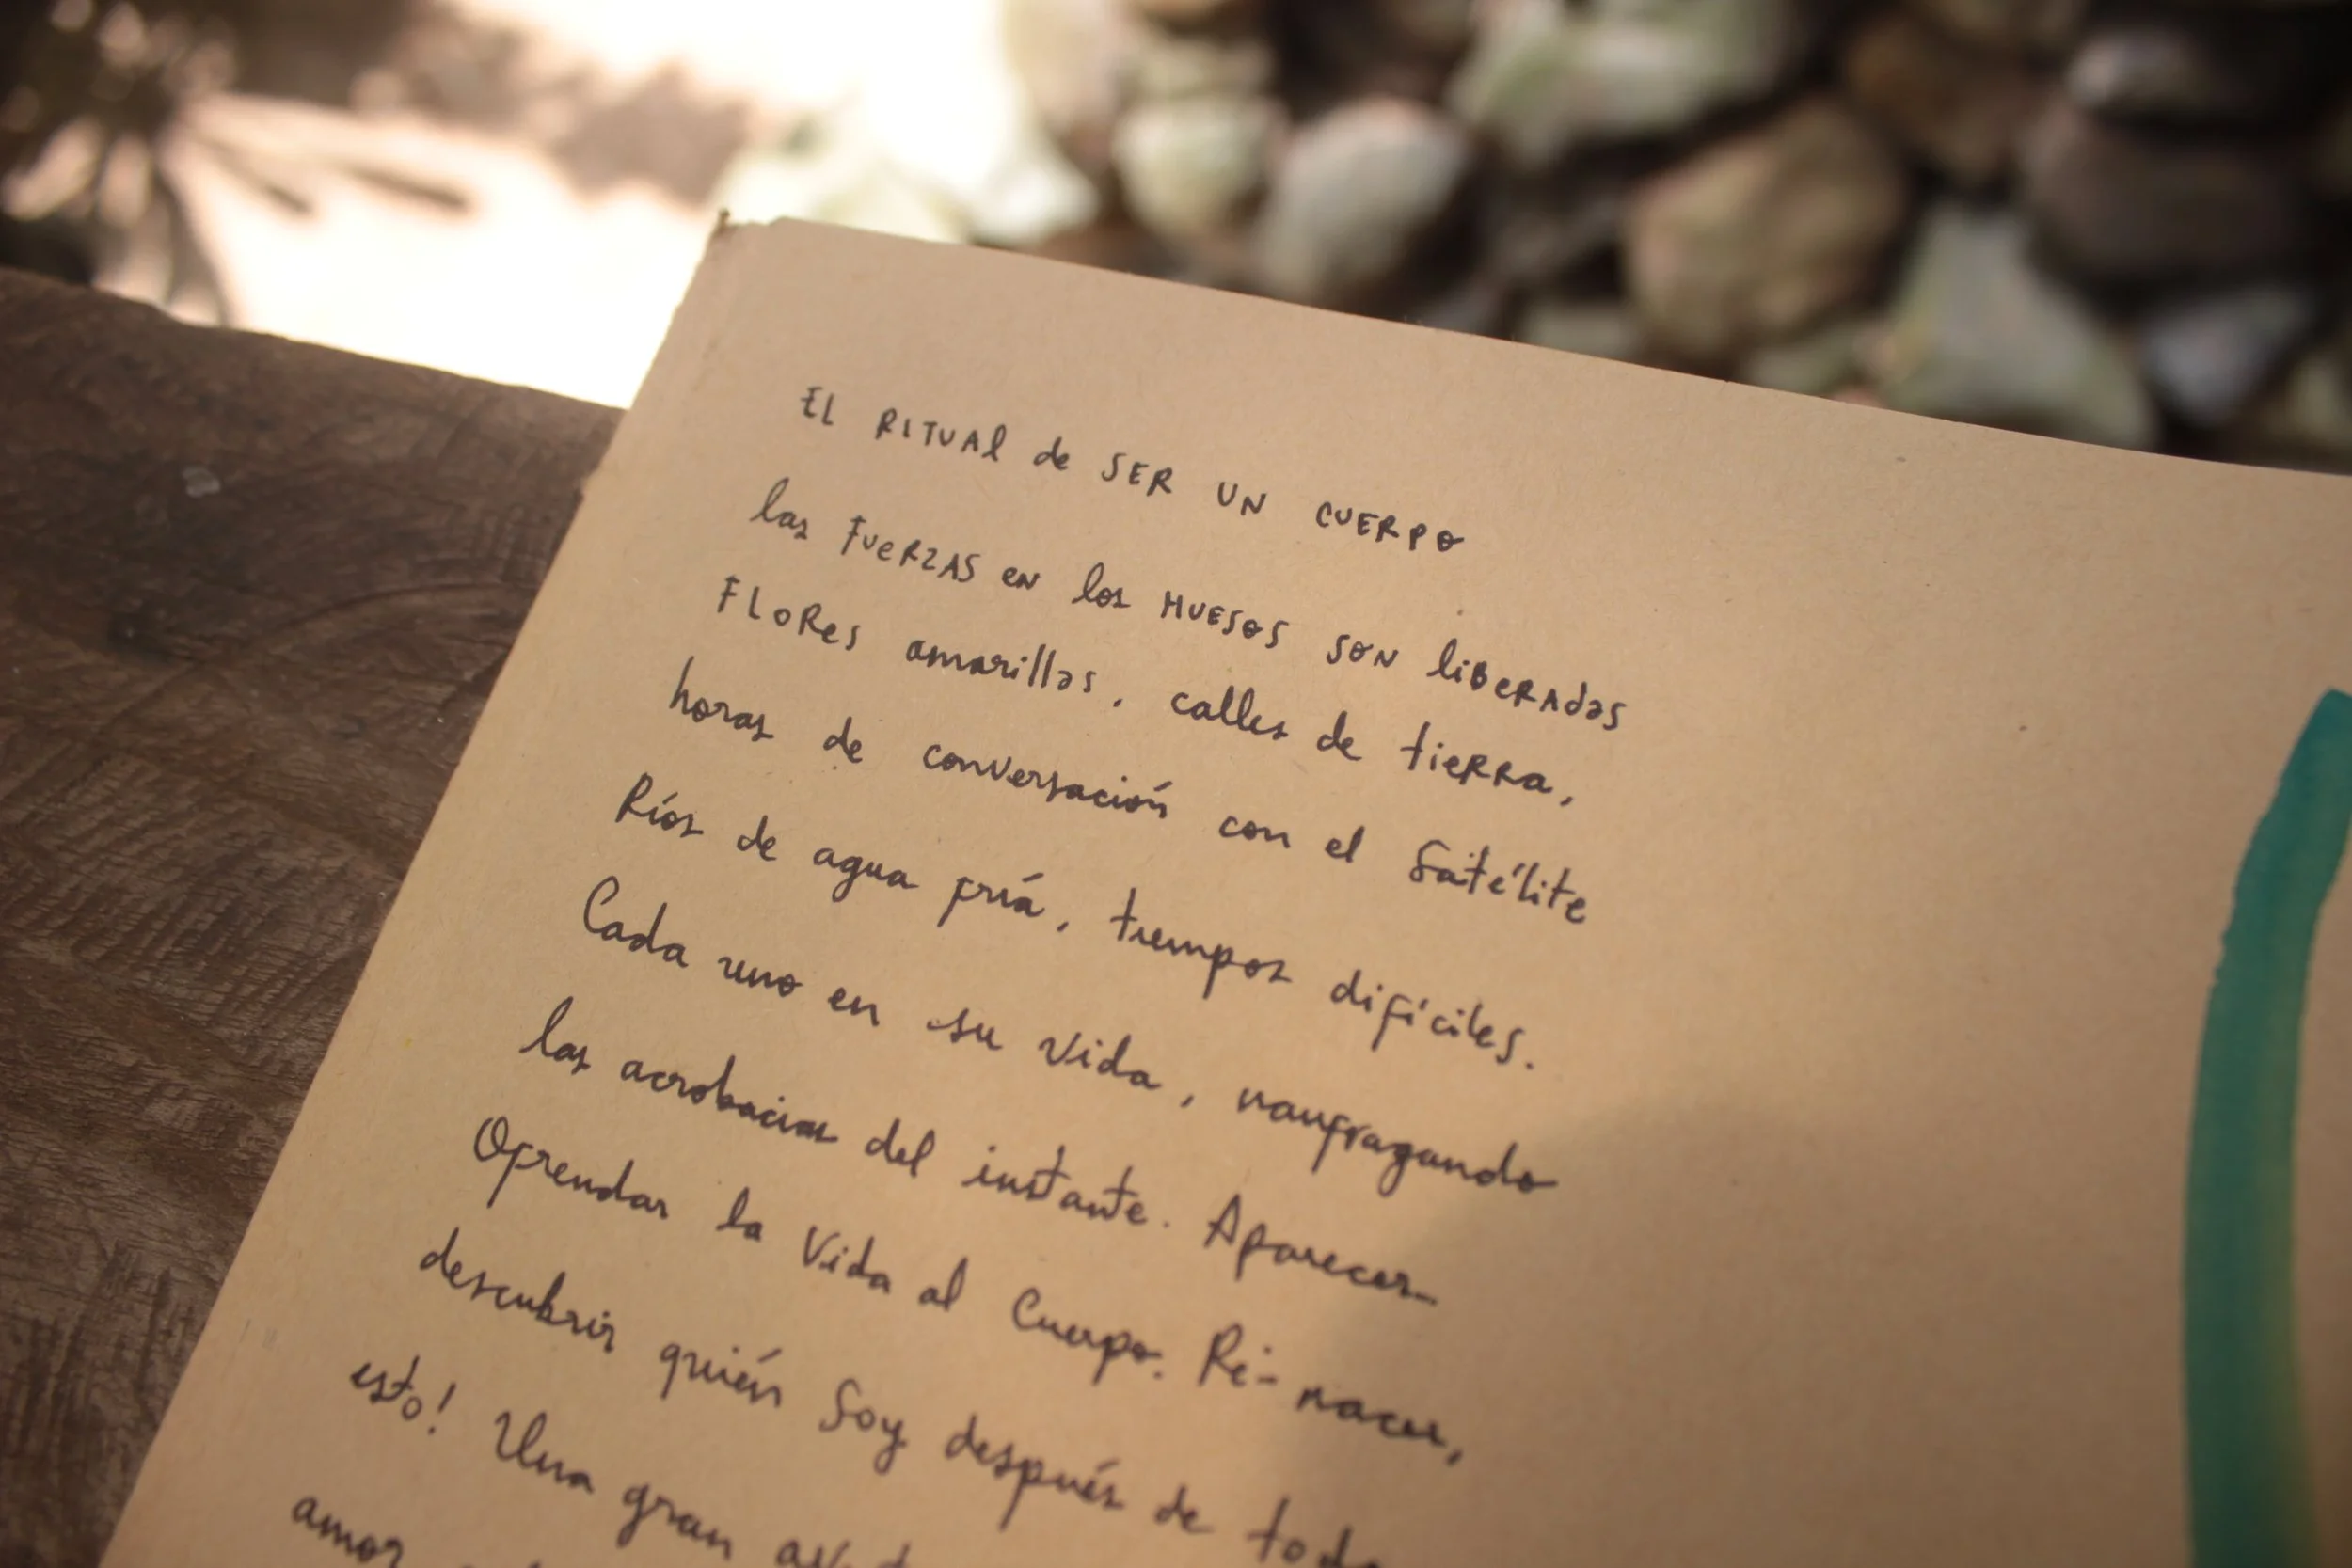 EL RITUAL de SER UN CUERPO
las FUERZAS en los HUESOS SON liBERAdas
FLORes amarillas, calles de tieRRa,
horas de conversación con el Satélite
Ríos de agua fría, tiempos difíciles.
Cada uno en su vida, naufragando
las acrobacias del instante. Aparecer-
Ofrendar la Vida al Cuerpo. Re-nacer,
descubrir quién Soy después de todo
esto! Una gran
amor